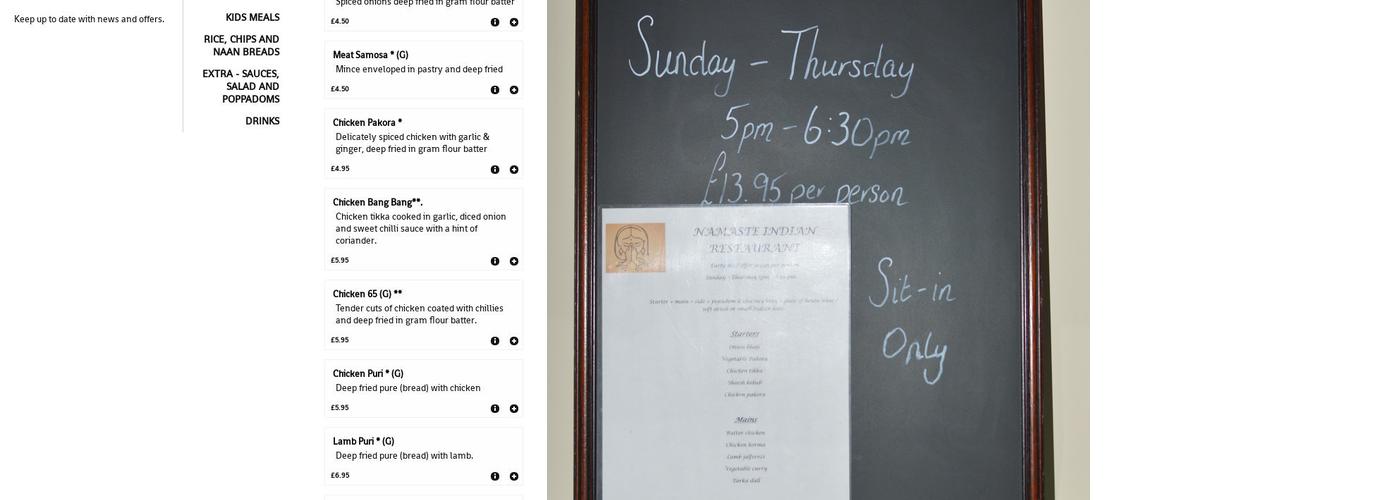 Keep up to date with news and offers.
KIDS MEALS
RICE, CHIPS AND
NAAN BREADS
EXTRA - SAUCES,
SALAD AND
POPPADOMS
DRINKS
Spiced onions deep fried in gram flour batter
£4.50
Meat Samosa * (G)
Mince enveloped in pastry and deep fried
£4.50
Chicken Pakora *
Delicately spiced chicken with garlic &
ginger, deep fried in gram flour batter
£4.95
Chicken Bang Bang**.
Chicken tikka cooked in garlic, diced onion
and sweet chilli sauce with a hint of
coriander.
£5.95
Chicken 65 (G) **
Tender cuts of chicken coated with chillies
and deep fried in gram flour batter.
£5.95
Chicken Puri * (G)
Deep fried pure (bread) with chicken
£5.95
Lamb Puri * (G)
Deep fried pure (bread) with lamb.
£6.95
Sunday - Thursday
5pm - 6:30pm
£13.95 per person
Sit-in
Only
NAMASTE INDIAN
RESTAURANT
Starters
Onion bhaji
Vegetable Pakora
Chicken tikka
Sheesh kebab
Chicken pakora
Mains
Butter chicken
Chicken korma
Lamb jalfrezi
Vegetable curry
Tarka dall